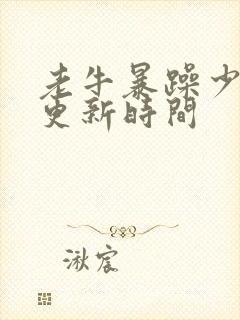 老牛暴躁少
更新時間
湫宸